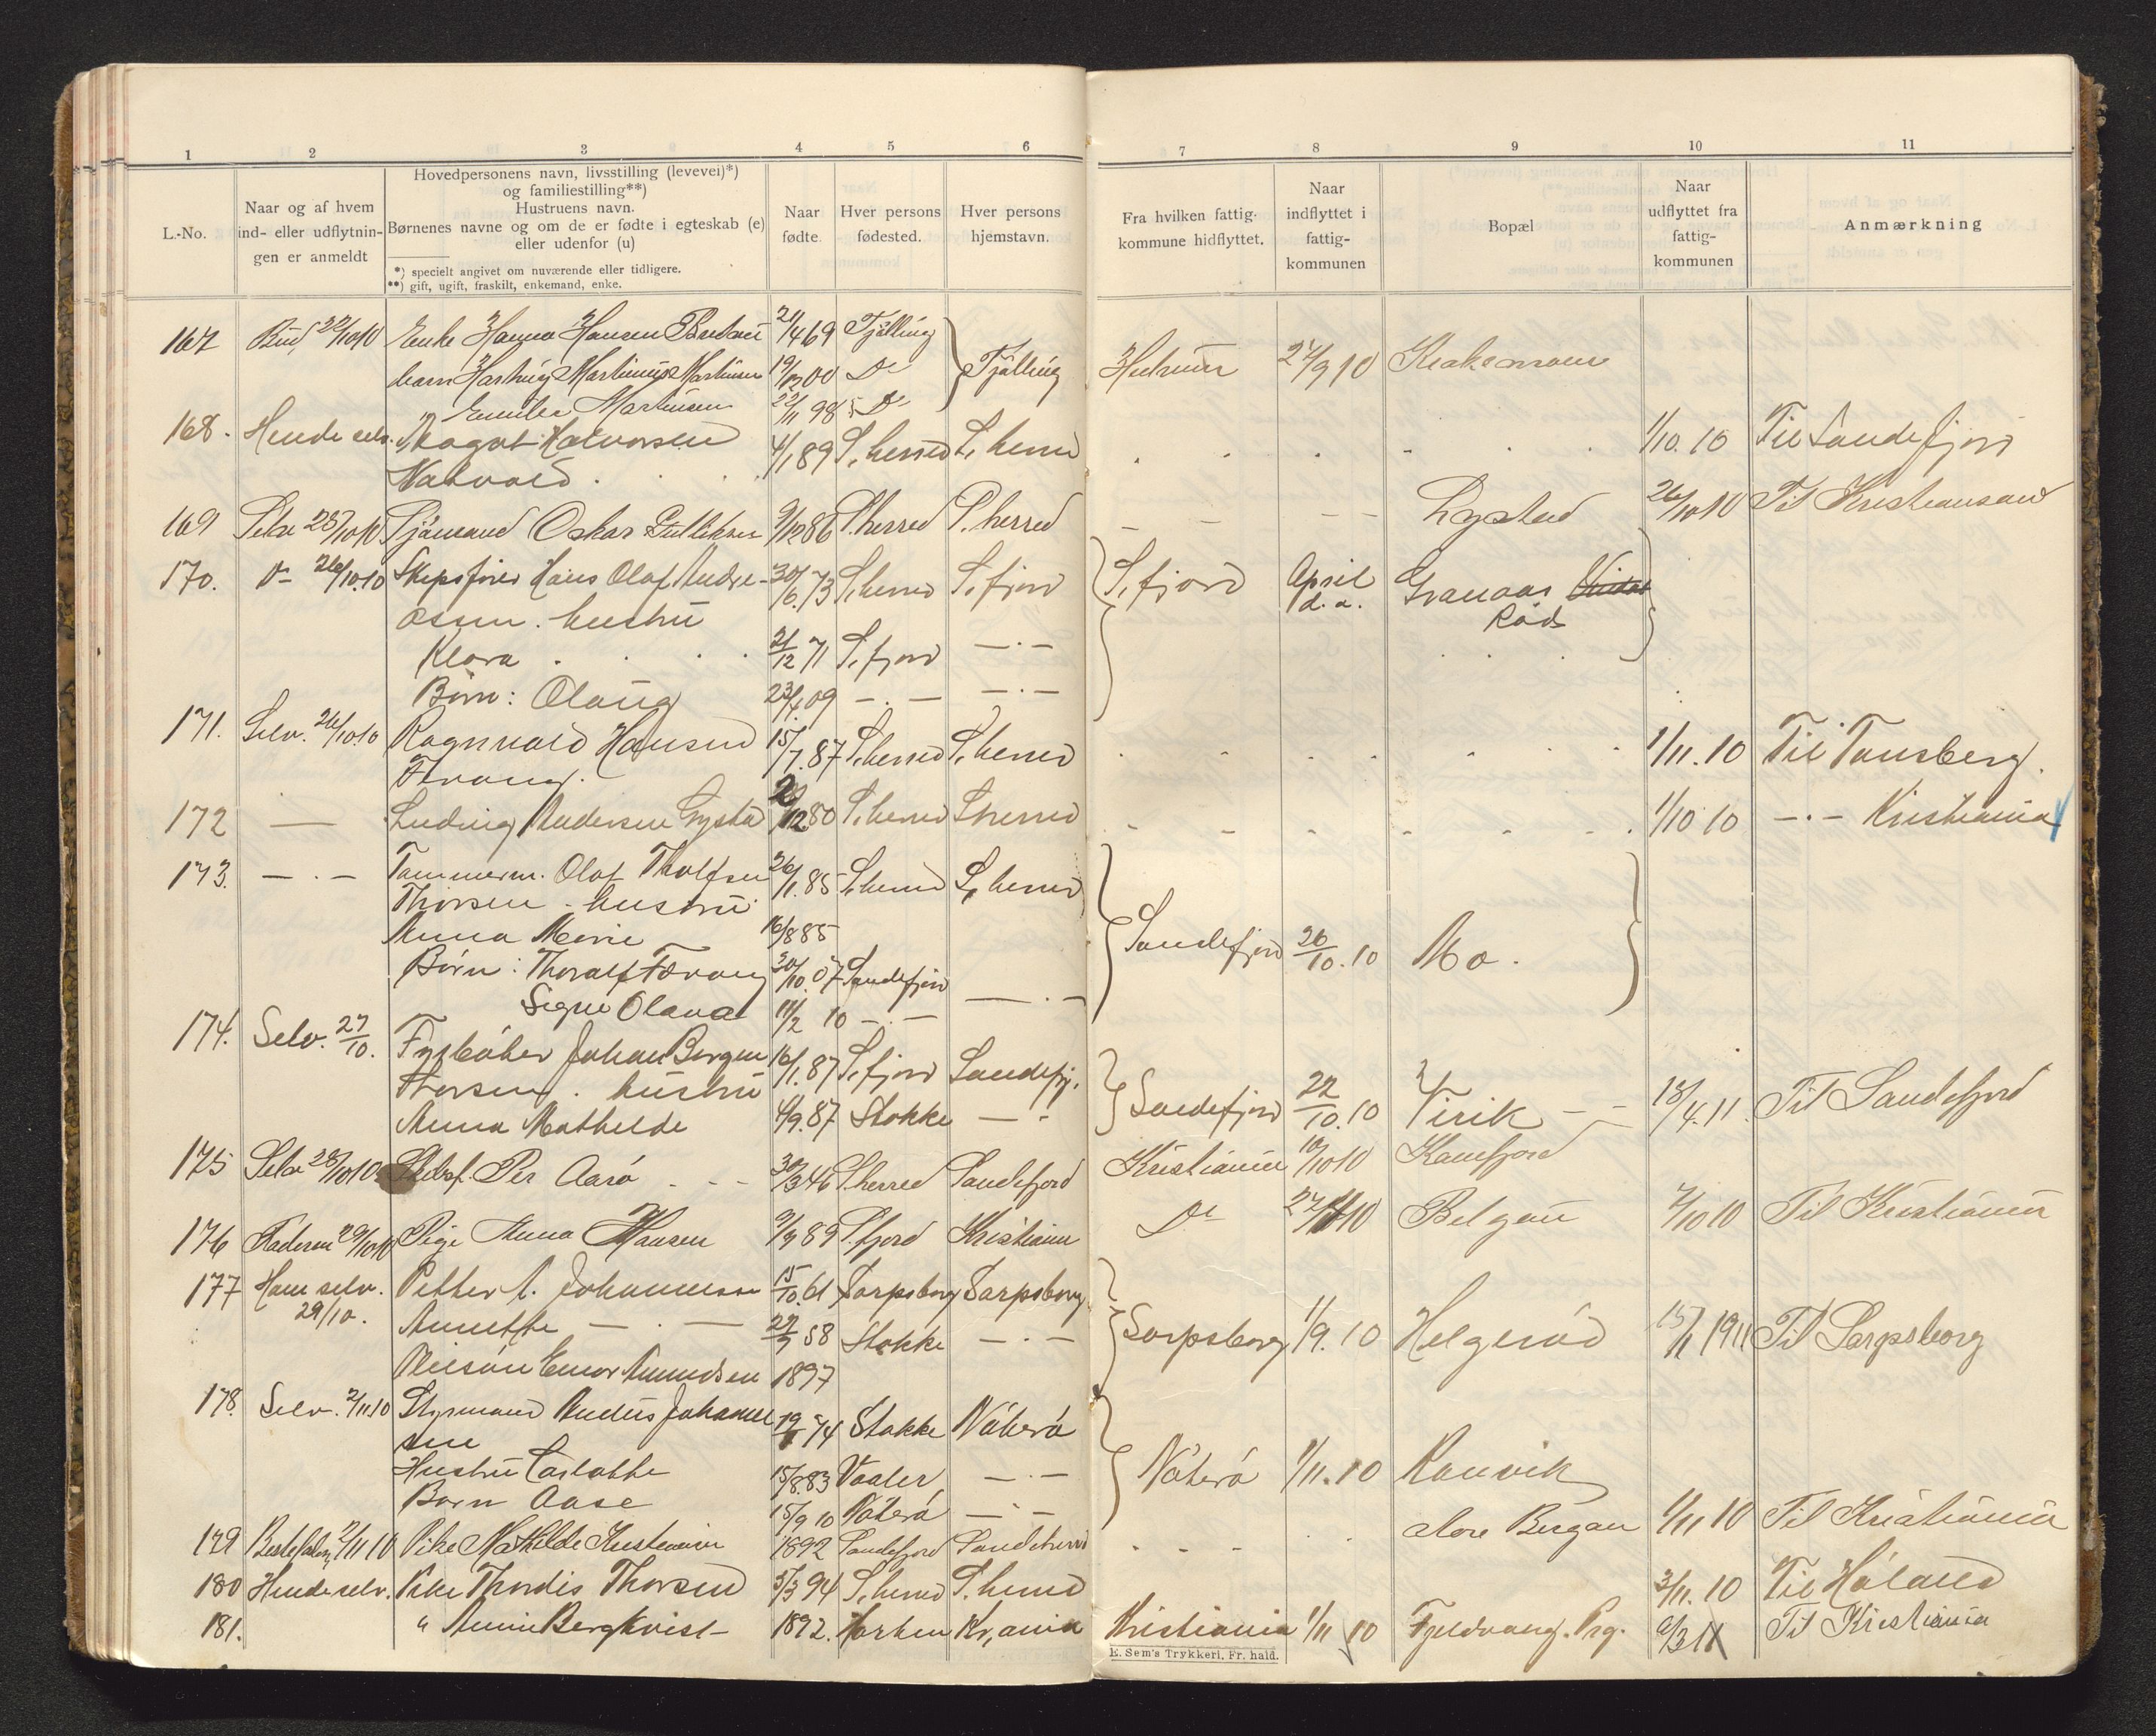 1 2 3 4 5 6 7 8 9 10 11
L.-No.
Naar og af hvem
ind- eller udflytnin-
gen er anmeldt
Hovedpersonens navn, livsstilling (levevei)*)
og familiestilling**)
Hustruens navn.
Børnenes navne og om de er fødte i egteskab (e)
eller udenfor (u)
*) specielt angivet om nuværende eller tidligere.
**) gift, ugift, fraskilt, enkemand, enke.
Naar
fødte.
Hver persons
fødested.
Hver persons
hjemstavn.
Fra hvilken fattig-
kommune hidflyttet.
Naar
indflyttet i
fattig-
kommunen
Bopæl
Naar
udflyttet fra
fattig-
kommunen
Anmærkning
167 Bud 22/10 10 Enke Hanna Hansen 21/4 69 Tjølling
barn Martinsen 19/12 00 Do Tjølling 27/9 10
Martinsen 22/11 98 Do
168. Hende selv. Halvorsen 4/1 89 S. herred S. herred 1/10. 10 Til Sandefjord
169 Selv 25/10 10 Sjømand Oskar Gulliksen 9/12 86 S. herred S. herred Lystad 26/10 10 Til Kristiansand
170. D- 26/10.10 Skipsfører Hans Olaf Andre- 30/6. 73 S. herred S. fjord S. fjord April Granaas
assen. hustru d. a. Rød
Klara 21/12 71 S. fjord — . —
Børn: Olaug 23/1 09 — . — — . —
171. Selv. 26/10.10 Ragnvald Hansen 15/7. 87 S. herred S. herred 1/11. 10 Til Tønsberg.
172 — Ludvig Andersen 12 80 S. herred S. herred 1/10 10 — . — Kristiania
173. — . — Tømmerm. Olaf Tholfsen 26/1. 85 S. herred S. herred
Thorsen - hustru
Anna Marie 16/8 85 Sandefjord 26/10. 10 Mo.
Børn: Thoralf 30/10. 07 Sandefjord
Signe Olava 11/2 10 — . — — . —
174. Selv. 27/10. Fyrbøter Johan Bergen 16/1. 87 S. fjord Sandefj.
Thorsen. hustru Sandefjord 22/10. 10 Virik — — 18/4. 11. Til Sandefjord
Anna Mathilde 4/9. 87 Stokke — "
175 Selv 28/10 10 Per Aarø 30/3 46 S. herred Sandefjord Kristiania 10/10 10 Kamfjord
176 Faderen 29/10 10 Pige Anna Hansen 9/9 89 S. fjord Kristiania Do 10 7/10 10 Til Kristiania
177 Ham selv. Petter A. Johannessen 15/10. 61 Sarpsborg Sarpsborg
29/10. Annette — . — 58 Stokke — . — Sarpsborg 1/9. 10 Helgerød 1911 Til Sarpsborg
Amundsen 1897
178. Selv. 2/11.10 Styrmand Anders Johannes 19 74 Stokke Nøterø
sen
Hustru Carlotte 15/8.83 Vaaler — . — Nøterø 1/11. 10 Ranvik
Barn Aase 15/9 10 Nøterø — . —
179 2/11 10 Pike Mathilde Kristiansen 1892 Sandefjord Sandeherred Bergan 1/11 10 Til Kristiania
180 Hende selv. Pike Thordis Thorsen 5/3 94 S. herred S. herred 3/11. 10 Til
181. " Bergkvist 1892. Horten Kr,ania Kristiania 1/11 10 Fjeldvang. Prg. Til Kristiania
E. Sem's Trykkeri, Fr. hald.